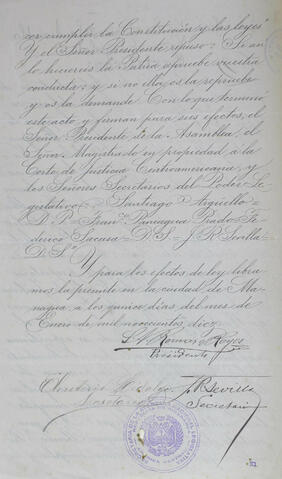 cer cumplir la Constitución y las leyes"
Y el Señor Presidente repuso: "Si an
lo hiciereis la Patria apruebe vuestra
conducta; y si no ella os la repruebe
y os la demande. Con lo que terminó
este acto y firman para sus efectos, el
Señor Presidente de la Asamblea, el
Señor Magistrado en propiedad a la
Corte de Justicia Centroamericana, y
los Señores Secretarios del Poder Le-
gislativo. Santiago Argüello
D. P. = Paniagua Prado = Fe-
derico Sacasa = D. S. = J. R. Sevilla
D. S."
Y para los efectos de ley libra-
mos la presente en la ciudad de Ma-
nagua, a los quince días del mes de
Enero de mil novecientos diez
Ramón Reyes
Presidente
J. R. Sevilla
Secretario Secretario